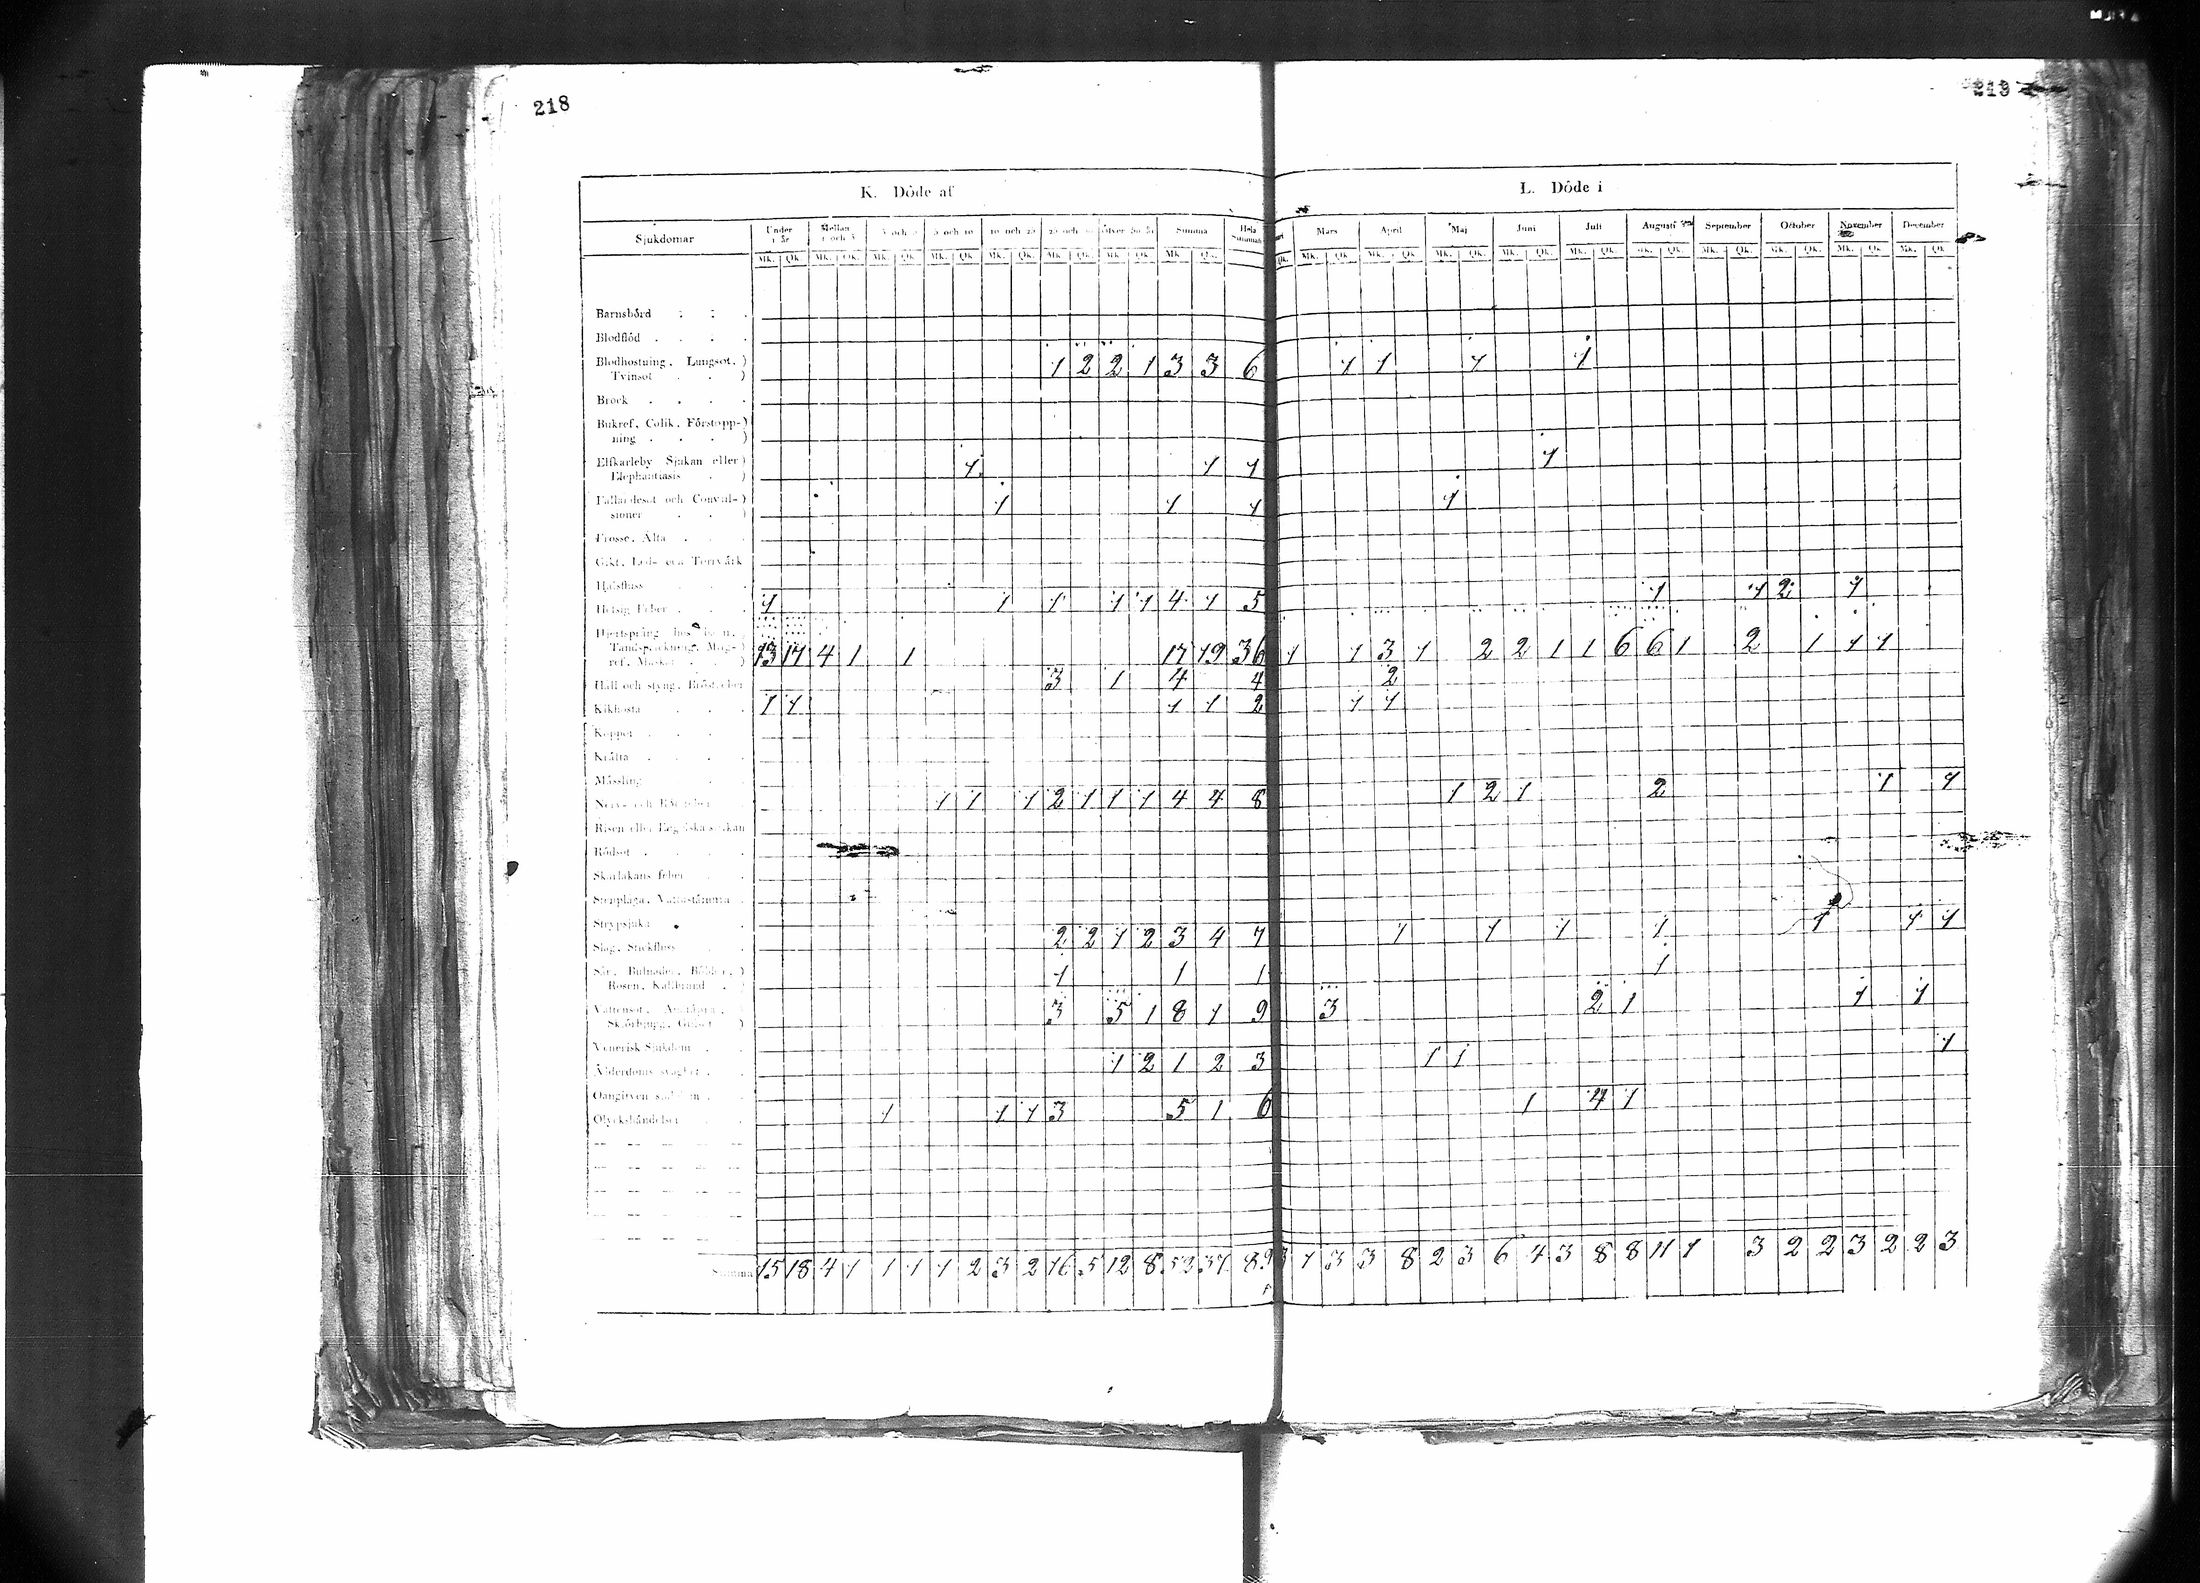 218
219
K. Döde af
L. Döde i
Sjukdomar Under 1 år Mellan 1 och 3 3 och 5 5 och 10 10 och 25 25 och 50 öfver 50 år Summa Hela Summan
Mars April Maj Juni Juli Augusti September October November December
Mk. Qk. Mk. Qk. Mk. Qk. Mk. Qk. Mk. Qk. Mk. Qk. Mk. Qk. Mk. Qk.
Qk. Mk. Qk. Mk. Qk. Mk. Qk. Mk. Qk. Mk. Qk. Mk. Qk. Mk. Qk. Mk. Qk. Mk. Qk. Mk. Qk.
Barnsbörd
Blodflöd
Blodhostning, Lungsot,
Tvinsot 1 2 2 1 3 3 6 1 1 1 1
Bråck
Bukref, Colik, Förstopp-
ning
Elfkarleby Sjukan eller
Elephantiasis 1 1 1 1
Fallandesot och Convul-
sioner 1 1 1 1
Frossa, Älta
Gikt, Led- och Torrvärk
Halsfluss
Hetsig Feber 1 1 1 1 1 4 1 5 1 1 2 1
Hjertsprång hos barn,
Tandsprickning, Mag-
ref, Maskar 13 17 4 1 1 17 19 36 1 1 3 1 2 2 1 1 6 6 1 2 1 1 1
Håll och styng, Bröstfeber 3 1 4 4 2
Kikhosta 1 1 1 1 2 1 1
Koppor
Kräfta
Mässling
Nerv- och Rötfeber 1 1 1 2 1 1 1 4 4 8 1 2 1 2 1 1
Risen eller Engelska sjukan
Rödsot
Skarlakans feber
Stenplåga, Vattustämma
Strypsjuka
Slag, Stickfluss 2 2 1 2 3 4 7 1 1 1 1 1 1 1
Sår, Bulnader, Bölder,
Rosen, Kallbrand 1 1 1 1
Vattensot,
Skörbjugg, Gulsot 3 5 1 8 1 9 3 2 1 1 1
Venerisk Sjukdom
Ålderdoms svaghet 1 2 1 2 3 1 1 1
Oangifven sjukdom
Olyckshändelser 1 1 1 3 5 1 6 1 4 1
Summa 15 18 4 1 1 1 1 2 3 2 16 5 12 8 52 37 89 3 1 3 3 8 2 3 6 4 3 8 8 11 1 3 2 2 3 2 2 3